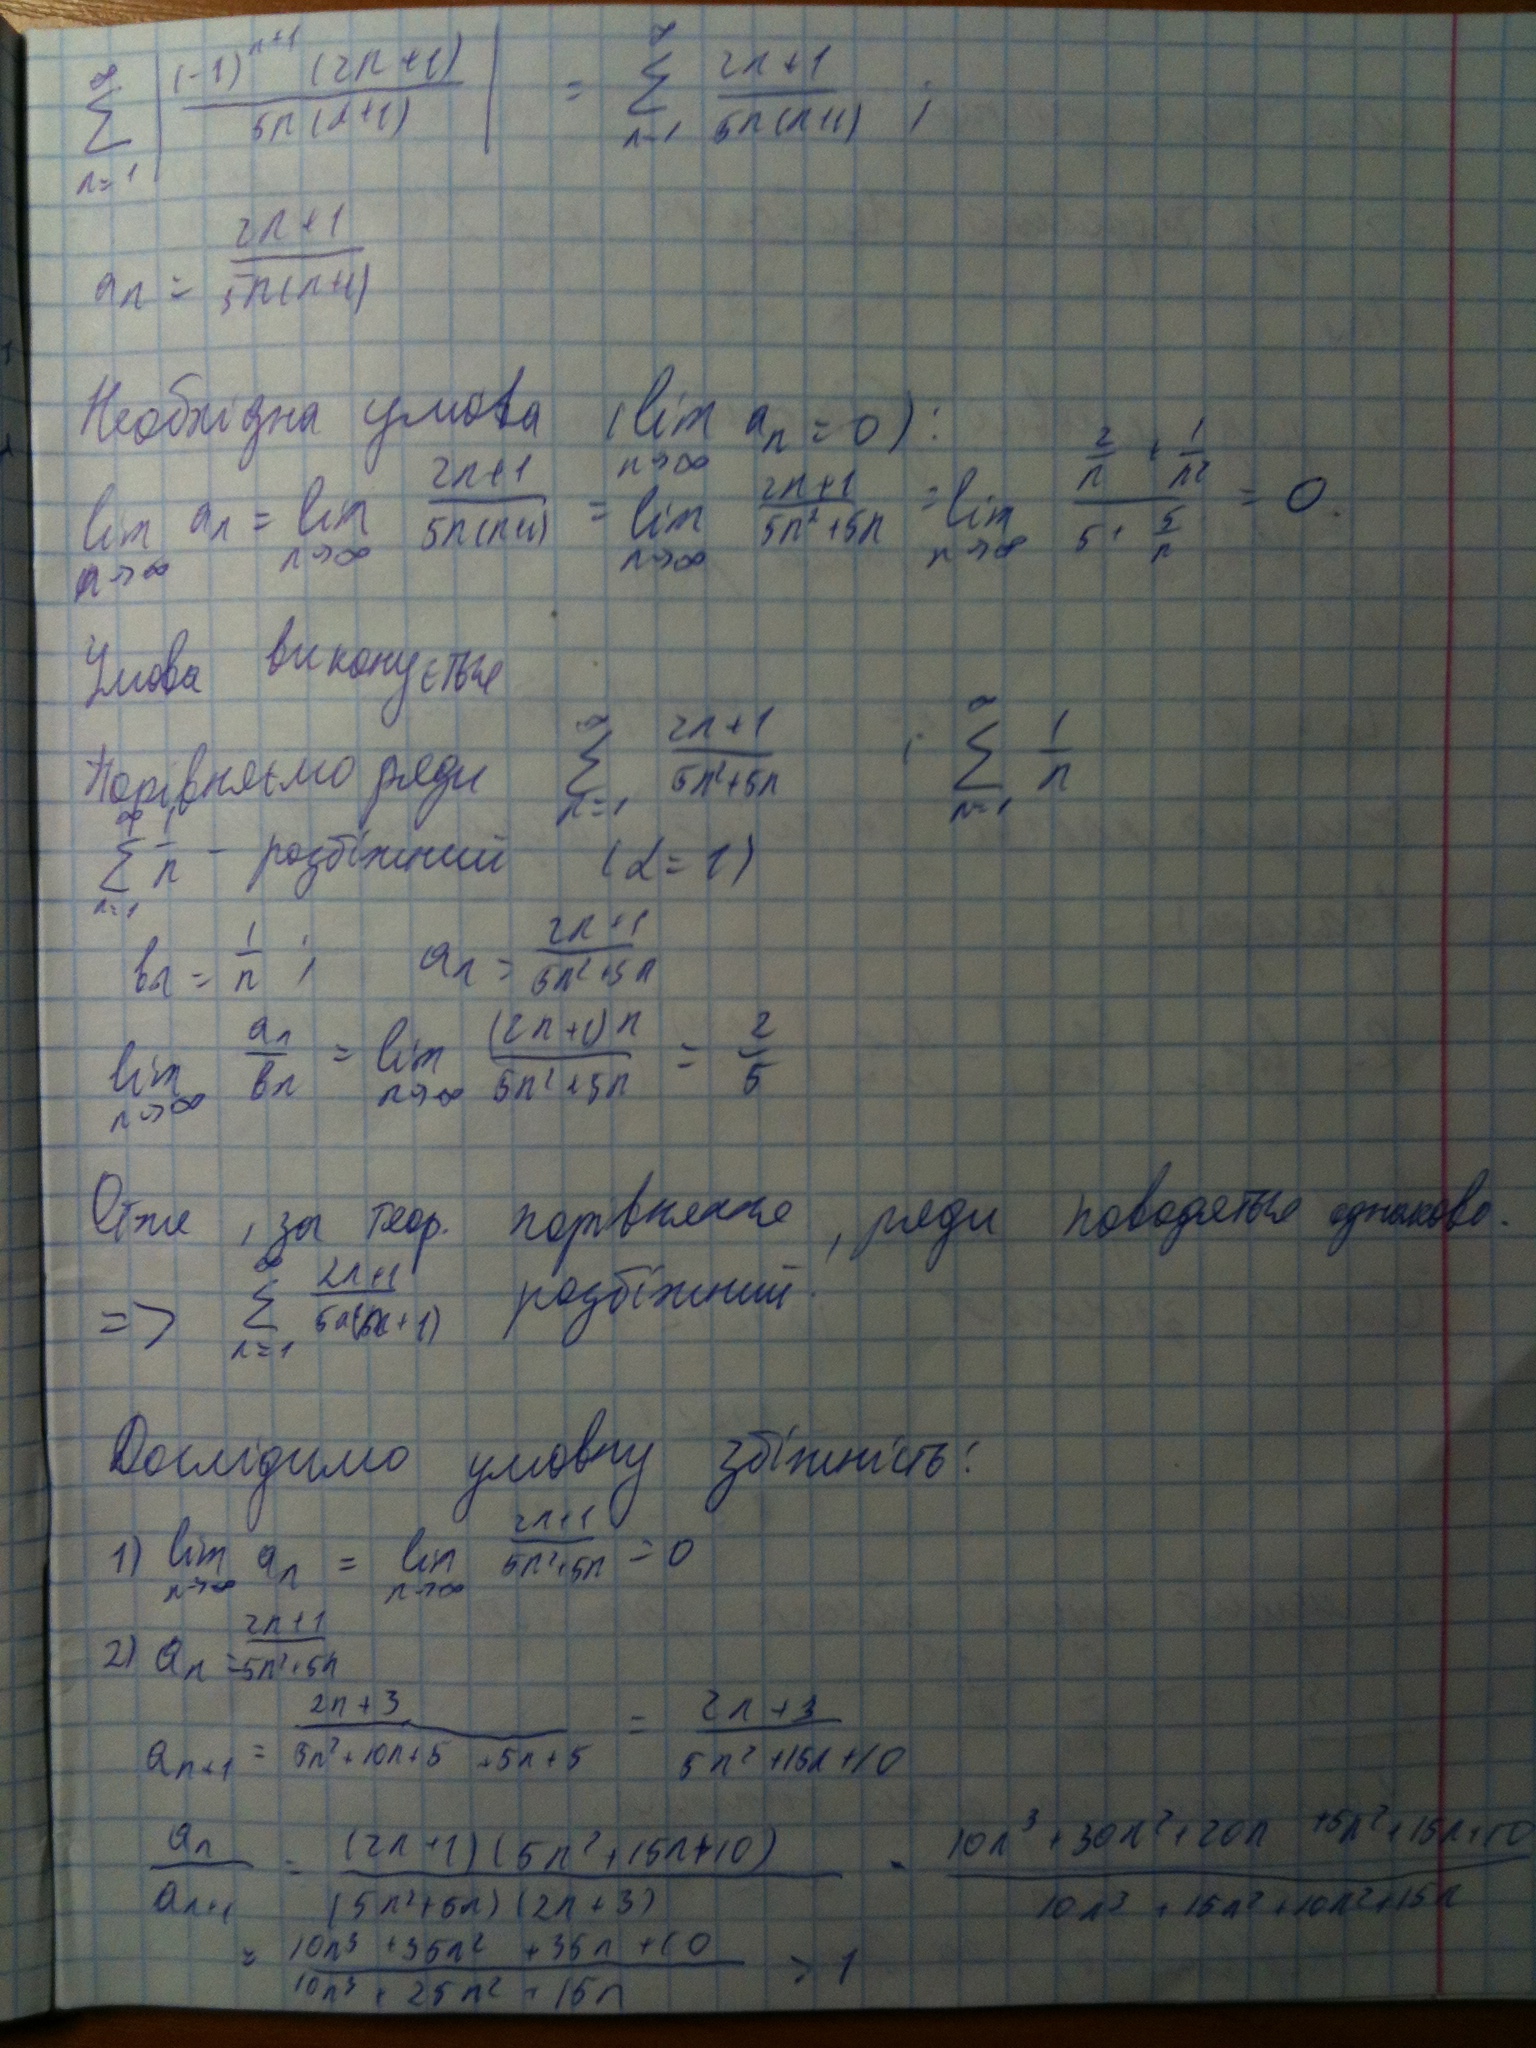 ∑_{n=1}^{∞} |((-1)^{n+1} (2n+1))/(5n(n+1))| = ∑_{n=1}^{∞} (2n+1)/(5n(n+1)) ;
a_n = (2n+1)/(5n(n+1))
Необхідна умова (lim_{n→∞} a_n = 0):
lim_{n→∞} a_n = lim_{n→∞} (2n+1)/(5n(n+1)) = lim_{n→∞} (2n+1)/(5n²+5n) = lim_{n→∞} (2/n + 1/n²)/(5 + 5/n) = 0.
Умова виконується
Порівняємо ряди ∑_{n=1}^{∞} (2n+1)/(5n²+5n) і ∑_{n=1}^{∞} 1/n
∑_{n=1}^{∞} 1/n - розбіжний (α=1)
b_n = 1/n ; a_n = (2n+1)/(5n²+5n)
lim_{n→∞} a_n/b_n = lim_{n→∞} ((2n+1)n)/(5n²+5n) = 2/5
Отже, за теор. порівняння, ряди поводяться однаково.
=> ∑_{n=1}^{∞} (2n+1)/(5n(n+1)) розбіжний.
Дослідимо умовну збіжність:
1) lim_{n→∞} a_n = lim_{n→∞} (2n+1)/(5n²+5n) = 0
2) a_n = (2n+1)/(5n²+5n)
a_{n+1} = (2n+3)/(5n²+10n+5+5n+5) = (2n+3)/(5n²+15n+10)
a_n/a_{n+1} = ((2n+1)(5n²+15n+10))/((5n²+5n)(2n+3)) = (10n³+30n²+20n+5n²+15n+10)/(10n³+15n²+10n²+15n)
= (10n³+35n²+35n+10)/(10n³+25n²+15n) > 1